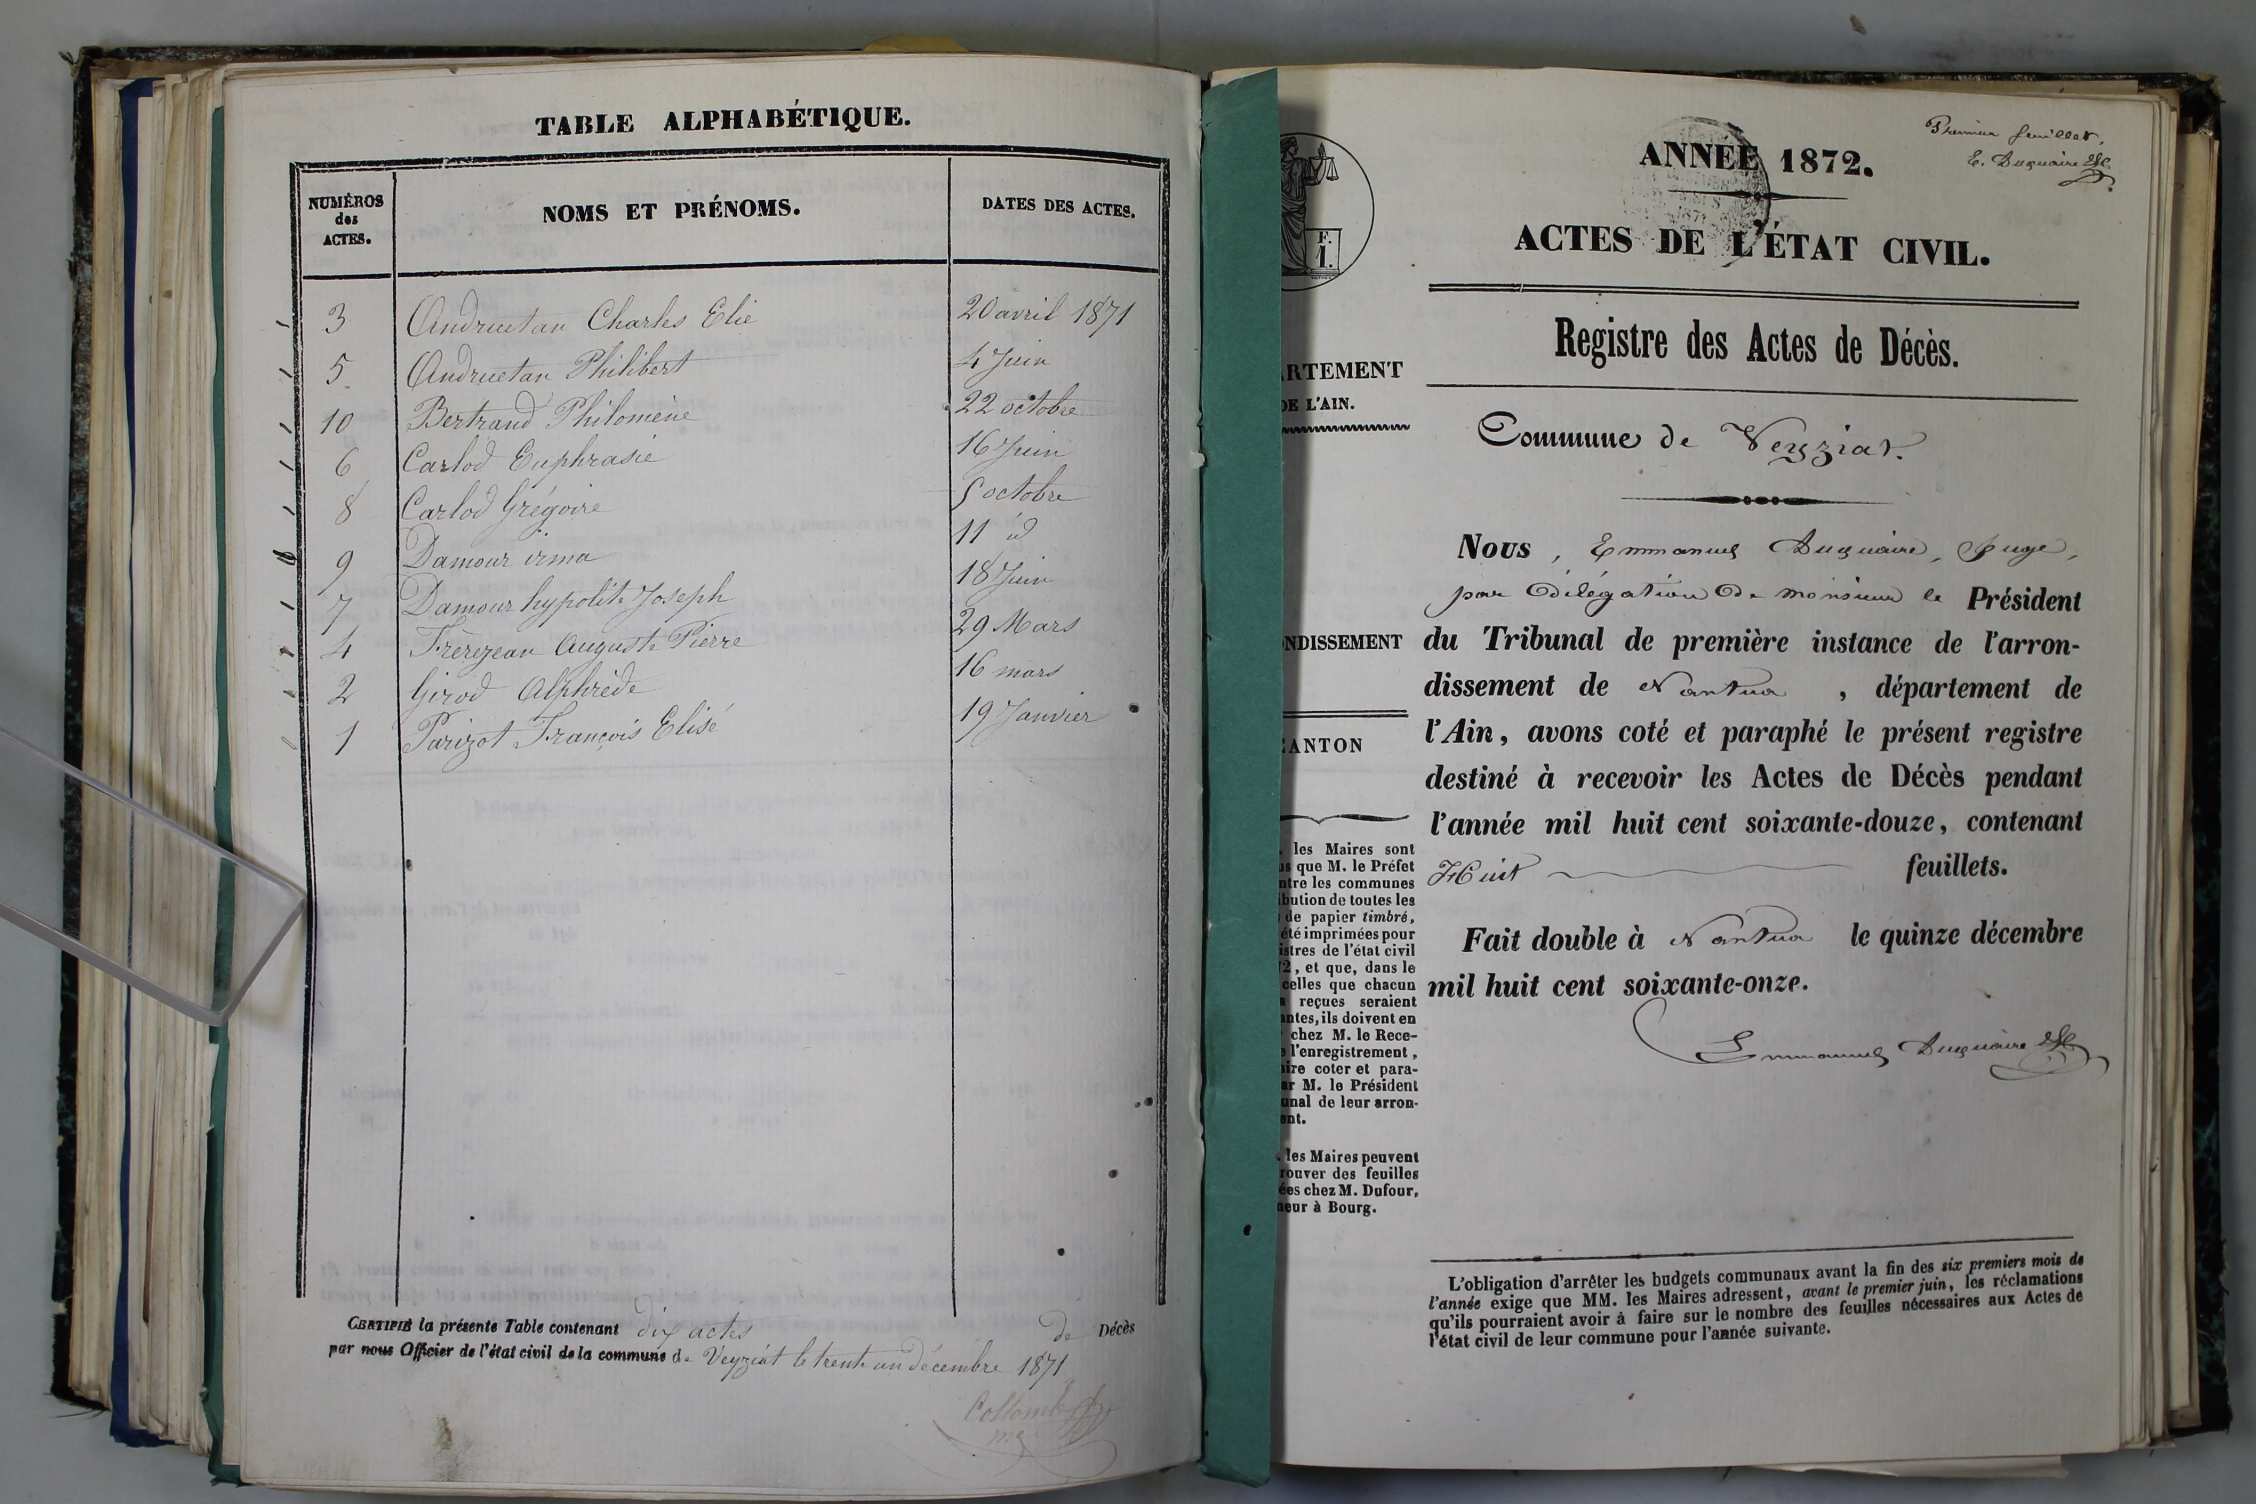 TABLE ALPHABÉTIQUE.
NUMÉROS des ACTES. NOMS ET PRÉNOMS. DATES DES ACTES.
3 Andruetan Charles Elie 20 avril 1871
5 Andruetan Philibert 4 Juin
10 Bertrand Philomène 22 octobre
6 Carlod Euphrasie 16 Juin
8 Carlod Grégoire 5 octobre
9 Damour irma 11 id
7 Damour hypolite Joseph 18 Juin
4 Frèrejean Auguste Pierre 29 Mars
2 Girod Alphrède 16 mars
1 Parizot François Elisé 19 Janvier
CERTIFIÉ la présente Table contenant dix actes de Décès
par nous Officier de l'état civil de la commune de Veyziat le trente un décembre 1871
Collomb
Premier feuillet.
E. Duquaire
ANNÉE 1872.
ACTES DE L'ÉTAT CIVIL.
Registre des Actes de Décès.
Commune de Veyziat.
Nous, Emmanuel Duquaire, Juge,
par délégation de monsieur le Président
du Tribunal de première instance de l'arron-
dissement de Nantua, département de
l'Ain, avons coté et paraphé le présent registre
destiné à recevoir les Actes de Décès pendant
l'année mil huit cent soixante-douze, contenant
Huit feuillets.
Fait double à Nantua le quinze décembre
mil huit cent soixante-onze.
Emmanuel Duquaire
L'obligation d'arrêter les budgets communaux avant la fin des six premiers mois de
l'année exige que MM. les Maires adressent, avant le premier juin, les réclamations
qu'ils pourraient avoir à faire sur le nombre des feuilles nécessaires aux Actes de
l'état civil de leur commune pour l'année suivante.
F.
1.
RTEMENT
DE L'AIN.
NDISSEMENT
ANTON
les Maires sont
que M. le Préfet
ntre les communes
bution de toutes les
de papier timbré,
été imprimées pour
istres de l'état civil
2, et que, dans le
celles que chacun
reçues seraient
ntes, ils doivent en
chez M. le Rece-
l'enregistrement,
ire coter et para-
r M. le Président
unal de leur arron-
ent.
les Maires peuvent
rouver des feuilles
es chez M. Dufour,
eur à Bourg.